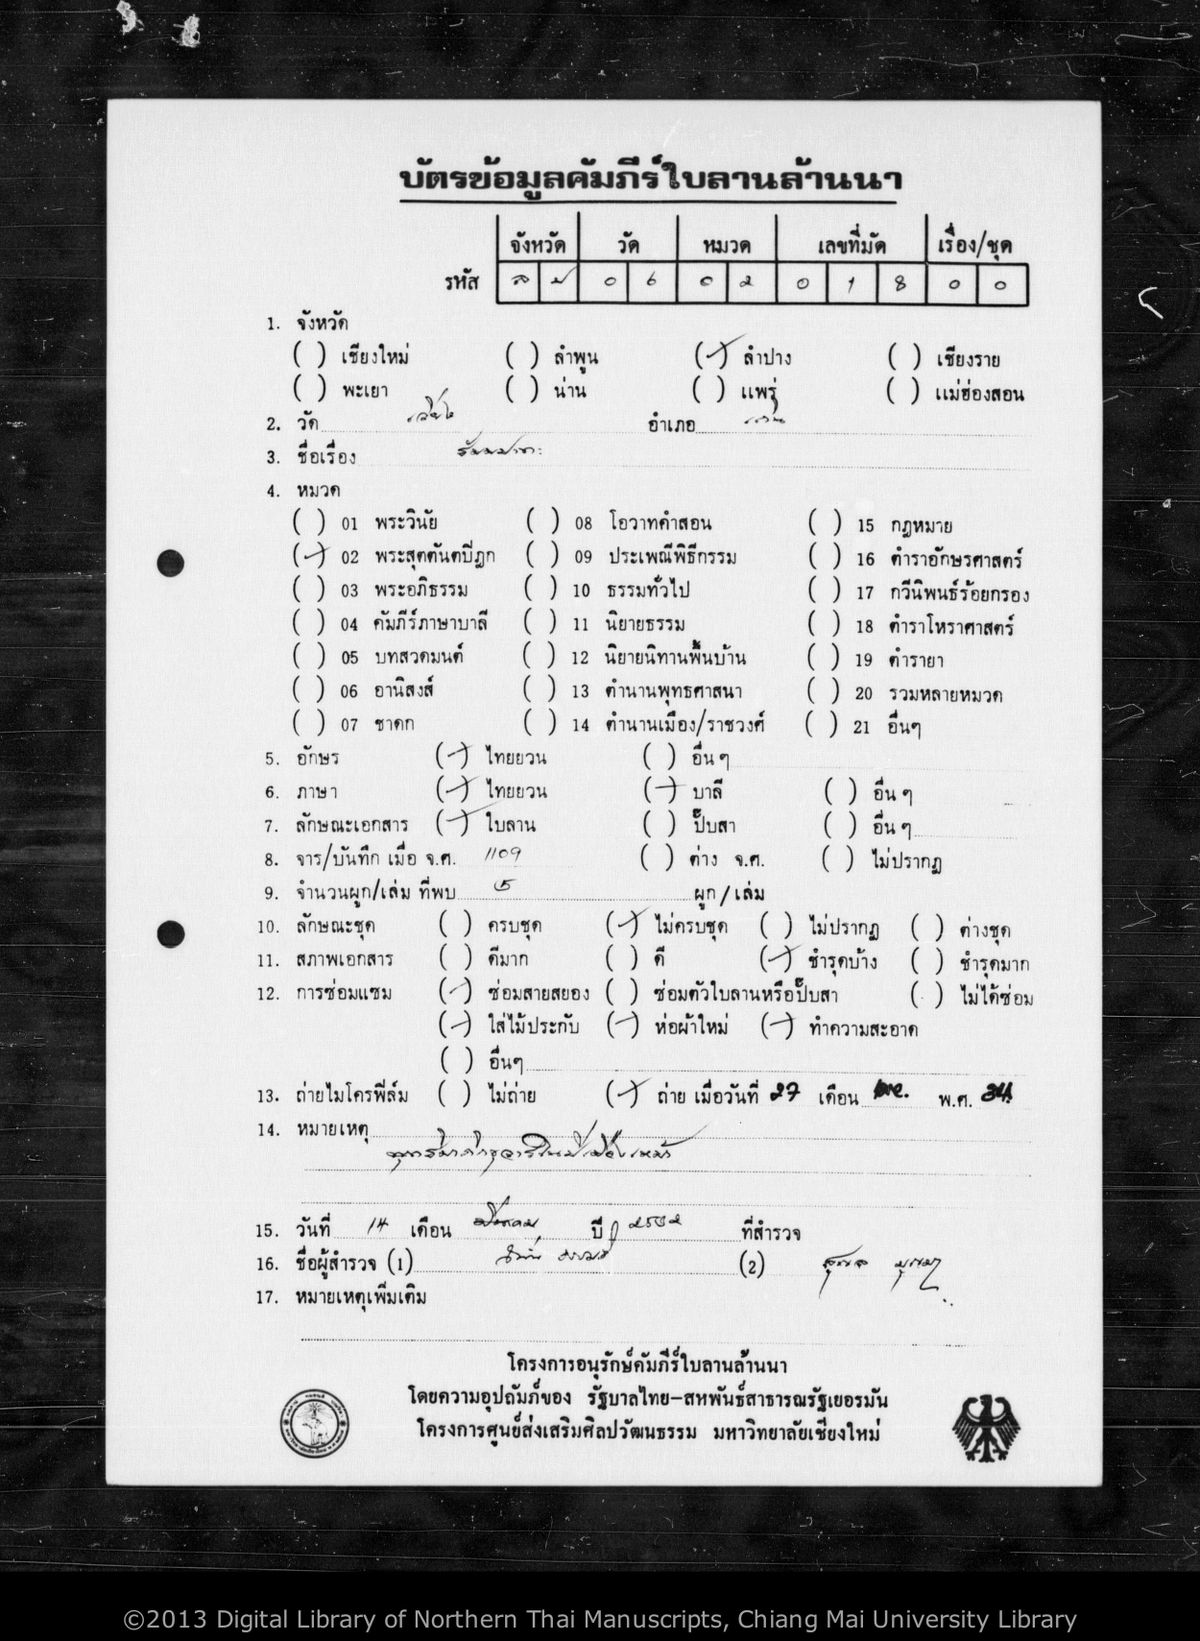 บัตรข้อมูลคัมภีร์ใบลานล้านนา
จังหวัด วัด หมวด เลขที่มัด เรื่อง/ชุด
รหัส ล ป ๐ ๖ ๐ ๒ 0 1 8 ๐ ๐
1. จังหวัด
( ) เชียงใหม่ ( ) ลำพูน (✓) ลำปาง ( ) เชียงราย
( ) พะเยา ( ) น่าน ( ) แพร่ ( ) แม่ฮ่องสอน
2. วัด เวียง อำเภอ เถิน
3. ชื่อเรื่อง ธัมมปาทะ
4. หมวด
( ) 01 พระวินัย ( ) 08 โอวาทคำสอน ( ) 15 กฎหมาย
(✓) 02 พระสุตตันตปิฎก ( ) 09 ประเพณีพิธีกรรม ( ) 16 ตำราอักษรศาสตร์
( ) 03 พระอภิธรรม ( ) 10 ธรรมทั่วไป ( ) 17 กวีนิพนธ์ร้อยกรอง
( ) 04 คัมภีร์ภาษาบาลี ( ) 11 นิยายธรรม ( ) 18 ตำราโหราศาสตร์
( ) 05 บทสวดมนต์ ( ) 12 นิยายนิทานพื้นบ้าน ( ) 19 ตำรายา
( ) 06 อานิสงส์ ( ) 13 ตำนานพุทธศาสนา ( ) 20 รวมหลายหมวด
( ) 07 ชาดก ( ) 14 ตำนานเมือง/ราชวงศ์ ( ) 21 อื่นๆ
5. อักษร (✓) ไทยยวน ( ) อื่น ๆ
6. ภาษา (✓) ไทยยวน (✓) บาลี ( ) อื่น ๆ
7. ลักษณะเอกสาร (✓) ใบลาน ( ) ปั๊บสา ( ) อื่น ๆ
8. จาร/บันทึก เมื่อ จ.ศ. 1109 ( ) ต่าง จ.ศ. ( ) ไม่ปรากฏ
9. จำนวนผูก/เล่ม ที่พบ ๕ ผูก/เล่ม
10. ลักษณะชุด ( ) ครบชุด (✓) ไม่ครบชุด ( ) ไม่ปรากฏ ( ) ต่างชุด
11. สภาพเอกสาร ( ) ดีมาก ( ) ดี (✓) ชำรุดบ้าง ( ) ชำรุดมาก
12. การซ่อมแซม (✓) ซ่อมสายสยอง ( ) ซ่อมตัวใบลานหรือปั๊บสา ( ) ไม่ได้ซ่อม
(✓) ใส่ไม้ประกับ (✓) ห่อผ้าใหม่ (✓) ทำความสะอาด
( ) อื่นๆ
13. ถ่ายไมโครฟิล์ม ( ) ไม่ถ่าย (✓) ถ่าย เมื่อวันที่ 27 เดือน พ.ศ.
14. หมายเหตุ
15. วันที่ 14 เดือน ปี ๒๕๓๒ ที่สำรวจ
16. ชื่อผู้สำรวจ (1) (2)
17. หมายเหตุเพิ่มเติม
โครงการอนุรักษ์คัมภีร์ใบลานล้านนา
โดยความอุปถัมภ์ของ รัฐบาลไทย-สหพันธ์สาธารณรัฐเยอรมัน
โครงการศูนย์ส่งเสริมศิลปวัฒนธรรม มหาวิทยาลัยเชียงใหม่
©2013 Digital Library of Northern Thai Manuscripts, Chiang Mai University Library